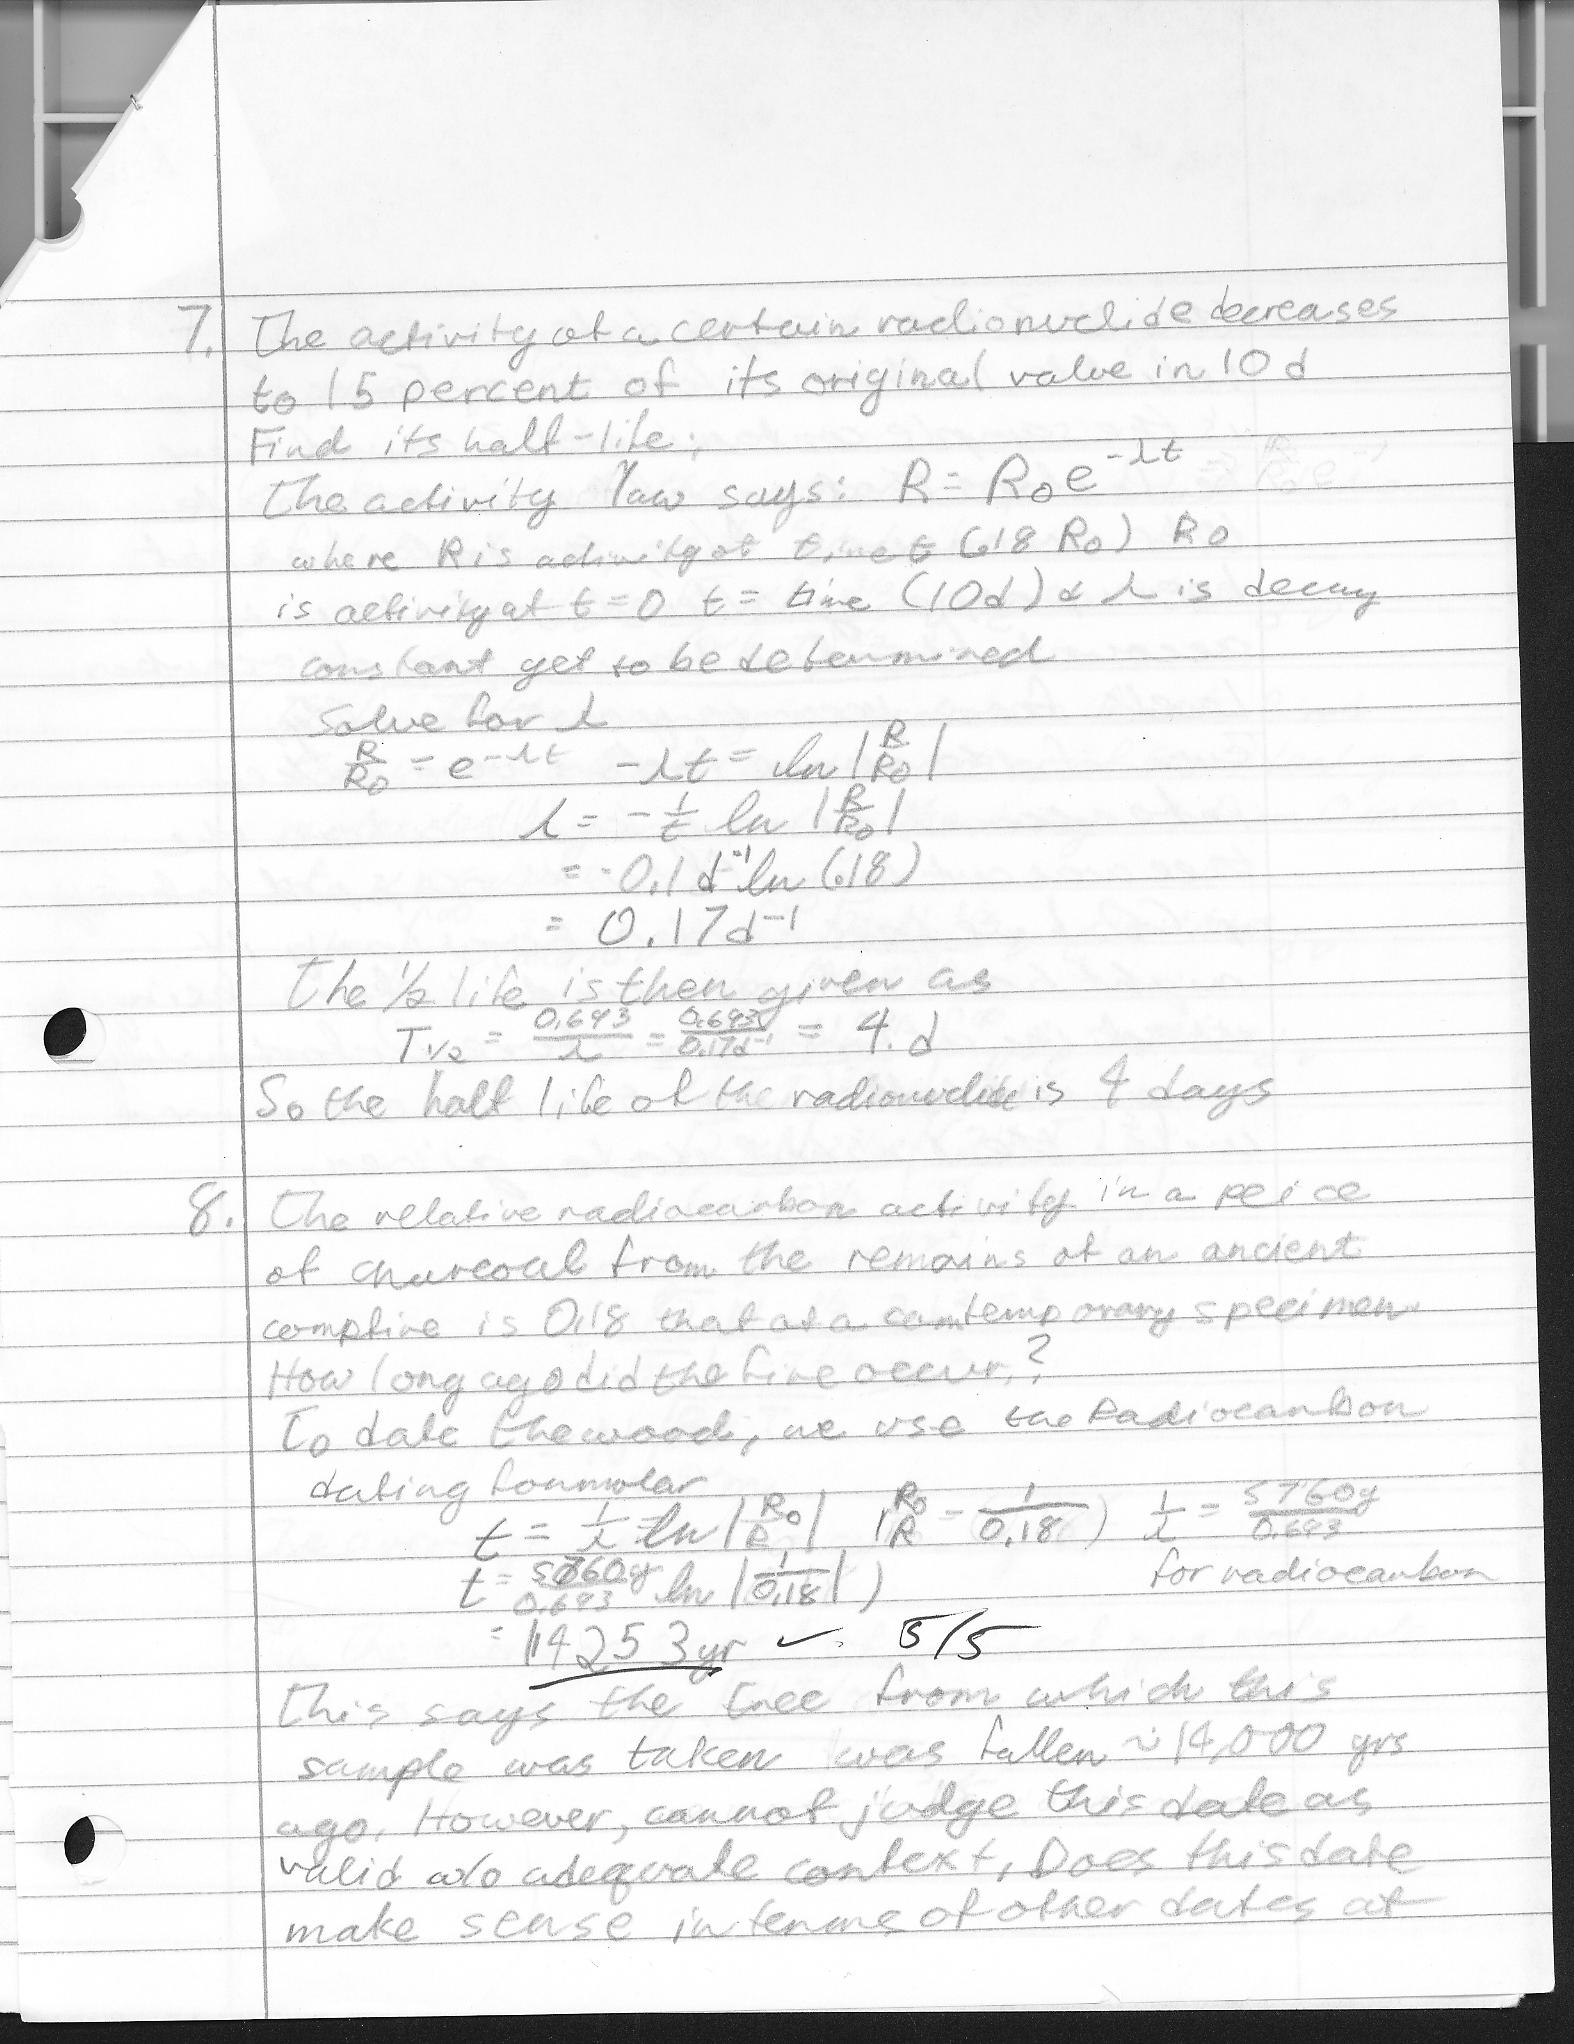 7. The activity of a certain radionuclide decreases
to 15 percent of its original value in 10 d
Find its half-life.
The activity law says: R = R₀e^-λt
where R is activity at time t (.18 R₀) R₀
is activity at t = 0 t = time (10d) & λ is decay
constant yet to be determined
Solve for λ
R/R₀ = e^-λt -λt = ln |R/R₀|
λ = -1/t ln |R/R₀|
= -0.1 d^-1 ln (.18)
= 0.17d^-1
The 1/2 life is then given as
T1/2 = 0.693/λ = 0.693/0.17d^-1 = 4. d
So the half life of the radionuclide is 4 days
8. The relative radiocarbon activity in a peice
of charcoal from the remains of an ancient
compfire is 0.18 that of a contemporary specimen
How long ago did the fire occur.?
To date the wood, we use the Radiocarbon
dating formular
t = 1/λ ln |R₀/R| (R₀/R = 1/0.18) 1/λ = 5760y/0.693
t = 5760y/0.693 ln |1/0.18|) for radiocarbon
= 14253yr ✓. 5/5
This says the tree from which this
sample was taken was fallen ~ 14,000 yrs
ago. However, cannot judge this date as
valid w/o adequate context. Does this date
make sense in terms of other dates at